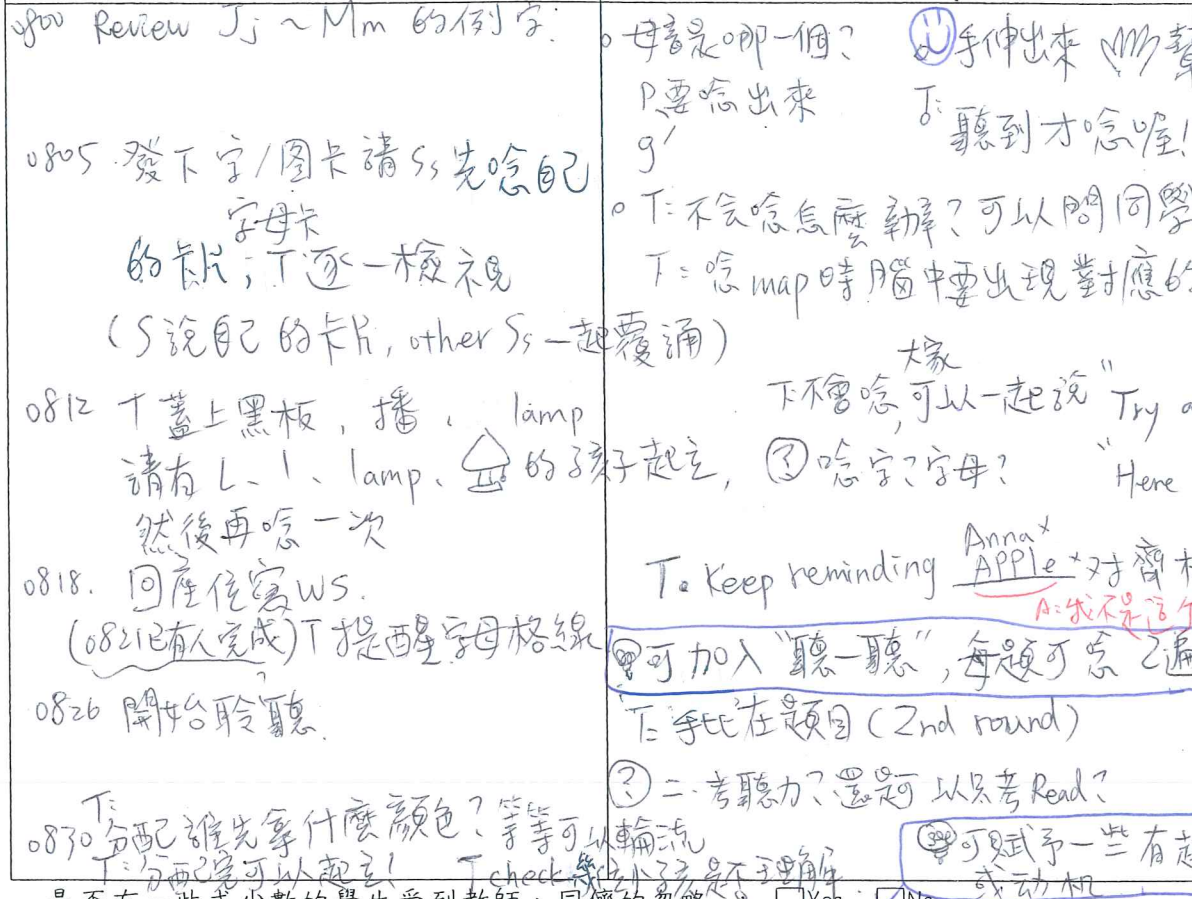 0800 Review Jj ~ Mm 的例字.
0805 發下字/图卡請Ss先唸自己
字母卡
的卡片; T逐一檢視
(S說自己的卡片, other Ss 一起覆誦)
0812 T蓋上黑板, 播, lamp
請有 L、l、lamp、 的孩子起立,
然後再唸一次
0818. 回座位寫WS.
(0821已有人完成) T提醒字母格線
0826 開始聆聽.
T:
0830 分配誰先拿什麼顏色? 等等可以輪流
T: 分配完可以起立! T check 幾位小孩是不理解
母音是哪一個?
要唸出來
手伸出來
T: 聽到才唸喔!
T: 不会唸怎麼辦? 可以問同學
T: 唸map時腦中要出現對應的
大家
不會唸, 可以一起說 "Try
? 唸字? 字母? "Here
Anna x
T. Keep reminding APPle x 对齊
A: 我不是這个
可加入"聽一聽", 每題可唸2遍
T: 手比在題目 (2nd round)
? 二. 考聽力? 還是可以只考Read?
可賦予一些有趣
或动机
是否有一些或少數的學生受到教師、同儕的忽略? □Yes □No